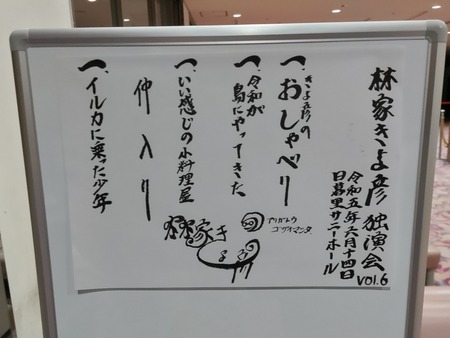 林家きよ彦 独演会 vol.6
令和五年六月十四日
日暮里サニーホール
一、きよ彦のおしゃべり
一、令和が島にやってきた
一、いい感じの小料理屋
仲入り
一、イルカに乗った少年
アリガトウ
ゴザイマシタ
林家き
よ彦